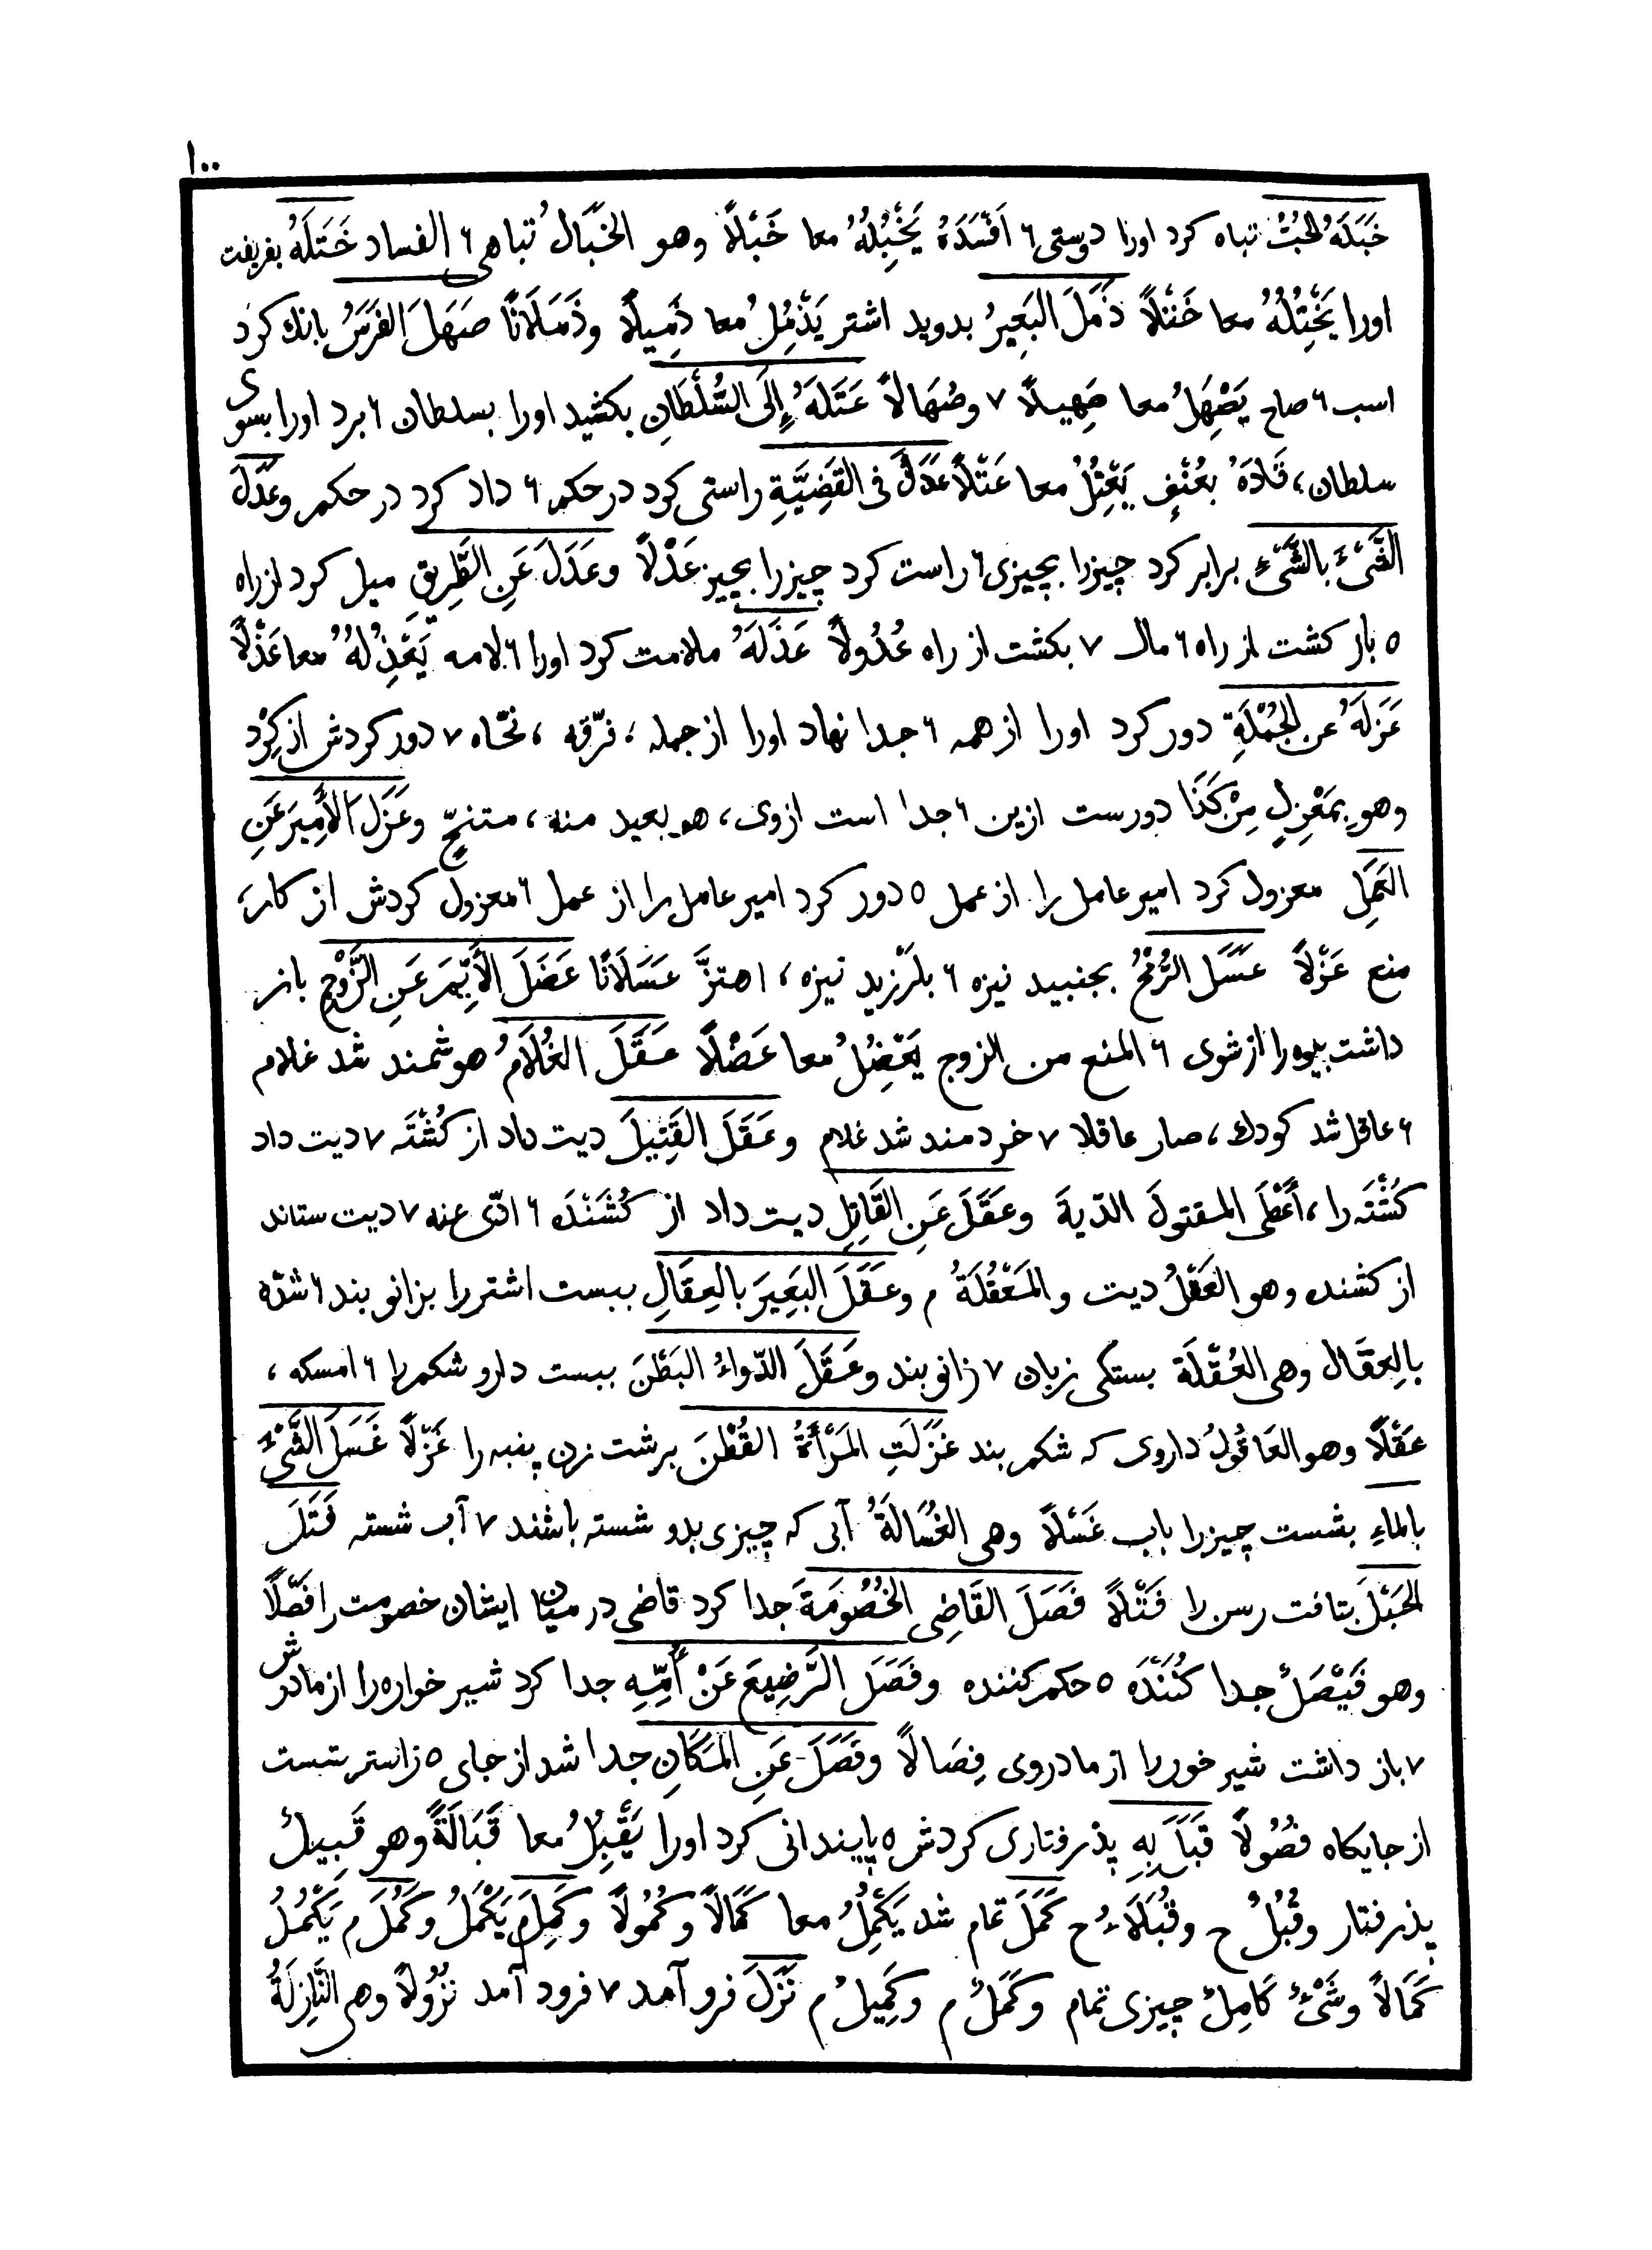 ١٠٠
خَبَلَهُ الحُبُّ تباه کرد اورا دوستی ٦ اَفْسَدَهُ يَخْبِلُهُ معا خَبْلاً وهو الخَبَالُ تباهی ٦ الفساد خَتَلَهُ بفریفت
اورا يَخْتِلُهُ معا خَتْلاً ذَمَلَ البَعِيرُ بدوید اشتر يَذْمِلُ معا ذَمِيلًا وذَمَلَانًا صَهَلَ الفَرَسُ بانك کرد
اسب ٦ صاح يَصْهِلُ معا صَهِيلًا ٧ وصُهَالاً عَتَلَهُ إِلَى السُّلْطَانِ بکشید اورا بسلطان ٦ برد اورا بسوی
سلطان، قَادَهُ بعُنْفٍ يَعْتِلُ معا عَتْلاً عَدَلَ فى القَضِيَّةِ راستی کرد درحکم ٦ داد کرد در حکم وعَدَلَ
الشَّىْءَ بالشَّىْءِ برابر کرد چیزرا بچیزی ٦ راست کرد چیزرا بچیز عَدْلاً وعَدَلَ عَنِ الطَّرِيقِ میل کرد از راه
٥ باز کشت از راه ٦ مال ٧ بکشت از راه عُدُولاً عَذَلَهُ ملامت کرد اورا ٦ لامه يَعْذِلُهُ معا عَذْلاً
عَزَلَهُ عن الجُمْلَةِ دور کرد اورا از همه ٦ جدا نهاد اورا از جمله، فرّقه، نحّاه ٧ دور کردش از کِرْد
وهو بمَعْزِلٍ مِنْ كَذَا دورست ازین ٦ جدا است ازوی، هو بعيد منه، متنحٍّ وعَزَلَ الأَمِيرَ عَنِ
العَمَلِ معزول کرد امیر عامل را از عمل ٥ دور کرد امیر عامل را از عمل ٦ معزول کردش از کار،
منع عَزْلاً عَسَلَ الرُّمْحُ بجنبید نیزه ٦ بلرزید نیزه، اهتزَّ عَسَلَانًا عَضَلَ الأَيِّمَ عَنِ الزَّوْجِ باز
داشت بیوه را از شوی ٦ المنع من الزوج يَعْضِلُ معا عَضْلاً عَقَلَ الغُلَامُ هوشمند شد غلام
٦ عاقل شد کودك، صار عاقلا ٧ خردمند شد غلام وعَقَلَ القَتِيلَ دیت داد از کُشْتَه ٧ دیت داد
کشته را، أَعْطَى المقتولَ الدّيةَ وعَقَلَ عَنِ القَاتِلِ دیت داد از کُشَنْدَه ٦ ادّى عنه ٧ دیت ستاند
از کشنده وهو العَقْلُ دیت والمَعْقُلَةُ م وعَقَلَ البَعِيرَ بالعِقَالِ ببست اشتررا بزانو بند ٦ شدّه
بالعِقَال وهى العُقْلَة بستکی زبان ٧ زانو بند وعَقَلَ الدّواءُ البَطْنَ ببست دارو شکم را ٦ امسكه،
عَقْلًا وهو العَاقُولُ داروی که شکم بند غَزَلَتِ المَرْأَةُ القُطْنَ برشت زن پنبه را غَزْلًا غَسَلَ الشَّىْءَ
بالماءِ بشست چیزرا باب غَسْلاً وهى الغُسَالَةُ آبی که چیزی بدو شسته باشند ٧ آب شسته فَتَلَ
الحَبْلَ بتافت رسن را فَتْلاً فَصَلَ القَاضِى الخُصُومَةَ جدا کرد قاضی در میان ایشان خصومت را فَصْلًا
وهو فَيْصَلٌ جدا کُنَنْدَه ٥ حکم کننده وفَصَلَ الرَّضِيعَ عَنْ أُمِّهِ جدا کرد شیر خواره را از مادرش
٧ باز داشت شیر خوررا از مادروی فِصَالاً وفَصَلَ عَنِ المَكَانِ جدا شد از جای ٥ زاستر ستست
از جایکاه فصُولًا قَبَلَ بِهِ پذرفتاری کردش ٥ پایندانی کرد اورا يَقْبِلُ معا قَبَالَةً وهو قَبِيلٌ
پذرفتار وقُبُلٌ ح وقُبَلَاءُ ح كَمَلَ تمام شد يَكْمِلُ معا كَمَالاً وكُمُولًا وكَمِلَ م يَكْمَلُ وكَمُلَ م يَكْمُلُ
كَمَالاً وشَىْءٌ كَامِلٌ چیزی تمام وكَمَلٌ م وكَمِيلٌ م نَزَلَ فرو آمد ٧ فرود آمد نُزُولًا وهى النَّازِلَةُ